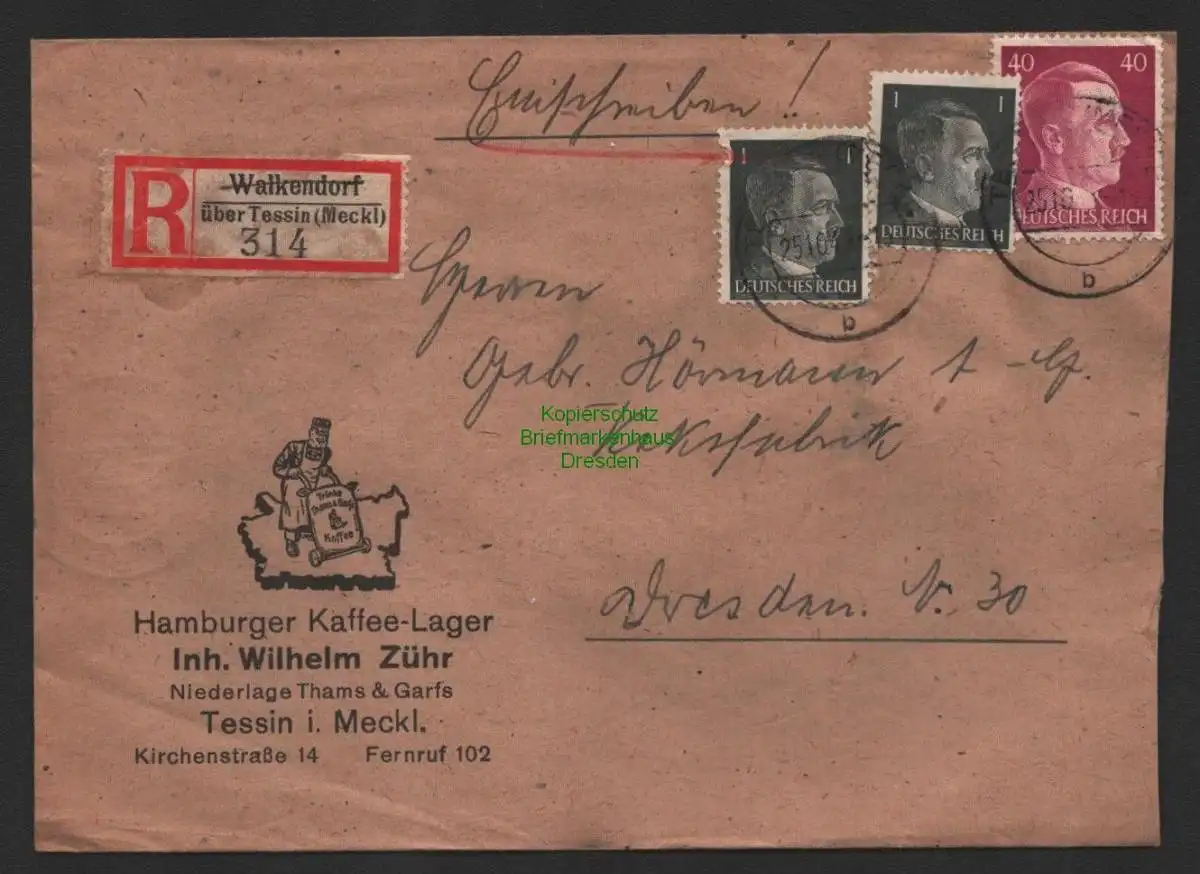 Einschreiben!
40 40
1 1
1 1
DEUTSCHES REICH
DEUTSCHES REICH
DEUTSCHES REICH
R
Walkendorf
über Tessin (Meckl)
314
b
b
Herren
Gebr. Hörmann A-G.
Keksfabrik
Kopierschutz
Briefmarkenhaus
Dresden
Dresden. N. 30
Trinkt
Thams & Garfs
Kaffee
Hamburger Kaffee-Lager
Inh. Wilhelm Zühr
Niederlage Thams & Garfs
Tessin i. Meckl.
Kirchenstraße 14 Fernruf 102